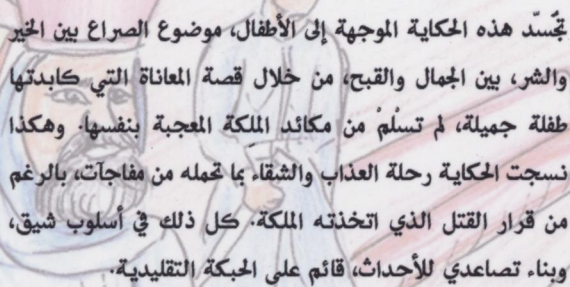 تجُسّد هذه الحكاية الموجهة إلى الأطفال، موضوع الصراع بين الخير
والشر، بين الجمال والقبح، من خلال قصة المعاناة التي كابدتها
طفلة جميلة، لم تسلْمْ من مكائد الملكة المعجبة بنفسها. وهكذا
نسجت الحكاية رحلة العذاب والشقاء بما تحمله من مفاجآت، بالرغم
من قرار القتل الذي اتخذته الملكة. كل ذلك في أسلوب شيق،
وبناء تصاعدي للأحداث، قائم على الحبكة التقليدية.